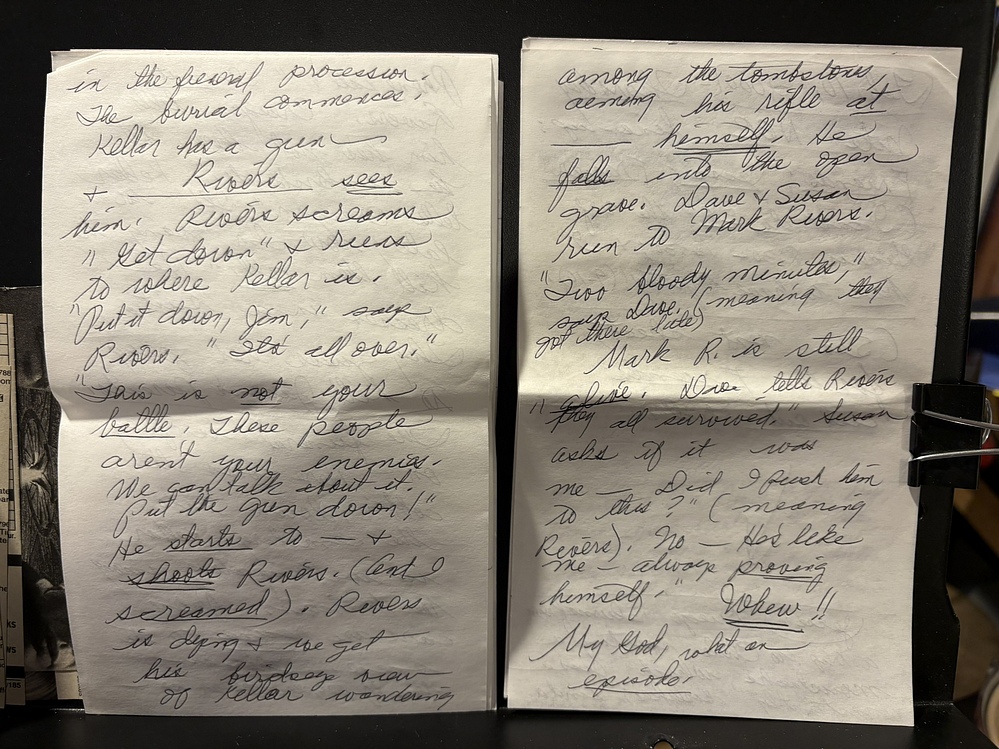 in the funeral procession.
The burial commences.
Kellar has a gun
+ Rivers sees
him. Rivers screams
"Get down" & runs
to where Kellar is.
"Put it down, Jim," says
Rivers. "It's all over."
"This is not your
battle. These people
aren't your enemies.
We can talk about it.
Put the gun down!"
He starts to — +
shoots Rivers. (And I
screamed). Rivers
is dying + we get
his birdseye view
of Kellar wandering
among the tombstones,
aiming his rifle at
himself. He
falls into the open
grave. Dave + Susan
run to Mark Rivers.
"Two bloody minutes,"
says Dave. (meaning they
got there late)
Mark R. is still
alive. Dave tells Rivers
"they all survived." Susan
asks if it was
me — Did I push him
to this?" (meaning
Rivers). No — He's like
me — always proving
himself." Whew!!
My God, what an
episode.